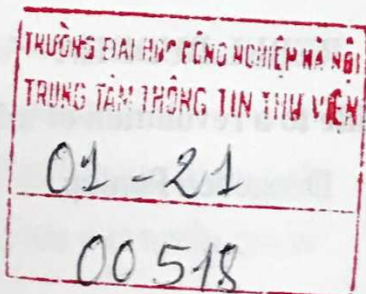 TRƯỜNG ĐẠI HỌC CÔNG NGHIỆP HÀ NỘI
TRUNG TÂM THÔNG TIN THƯ VIỆN
01-21
00518